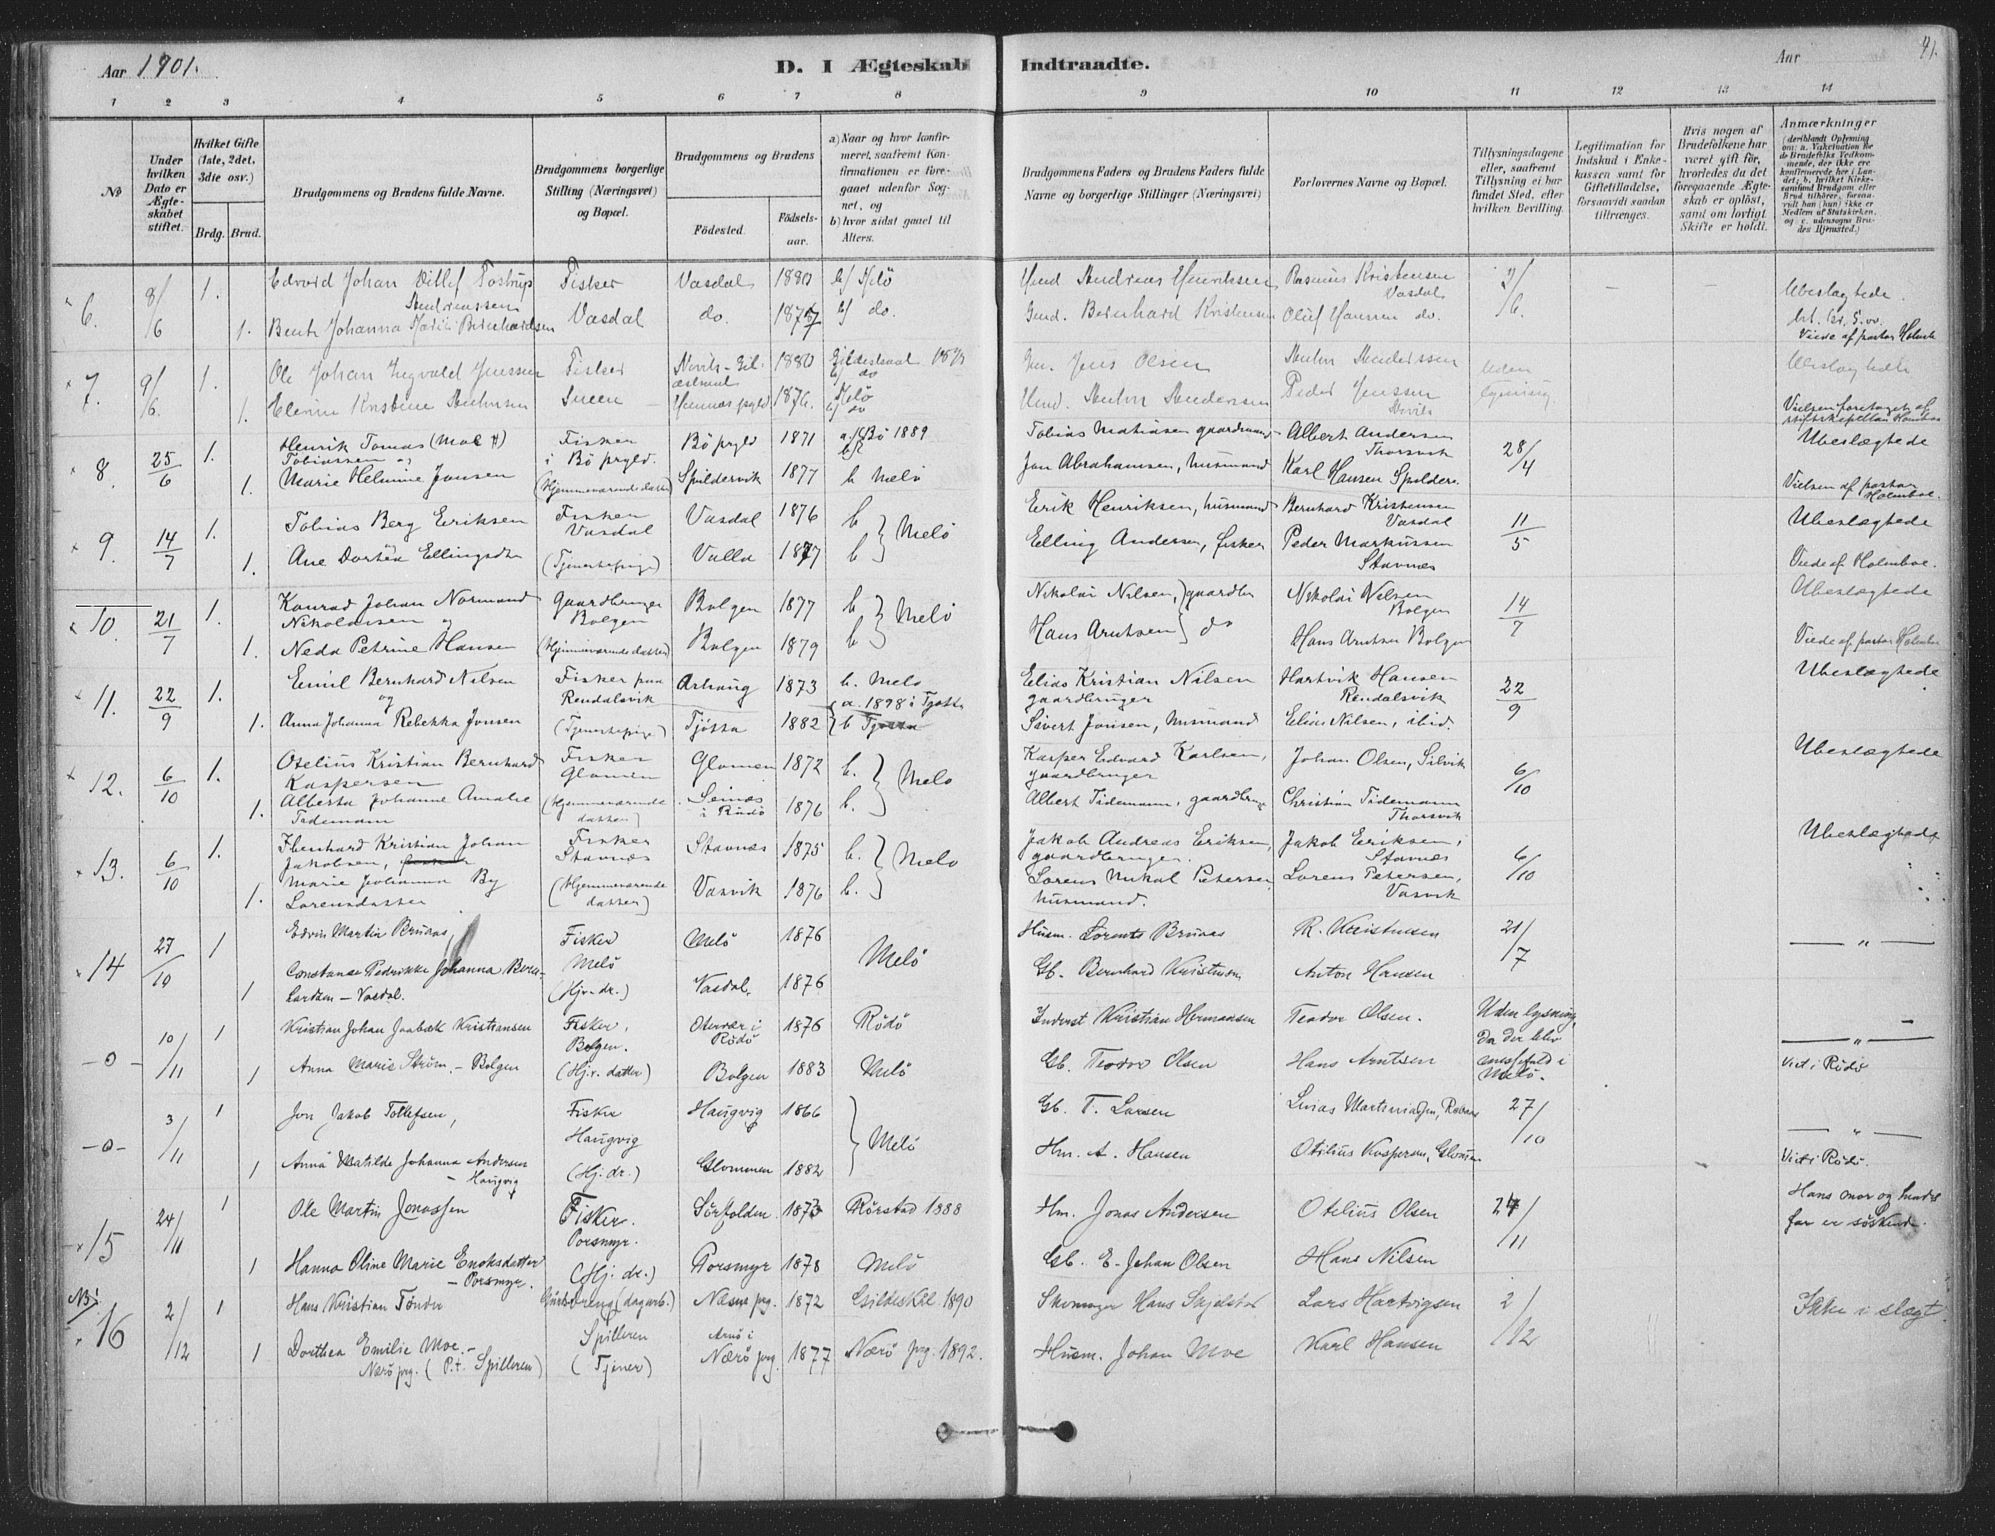 Aar 1901.
D. I Ægteskab Indtraadte.
Aar
91.
1 2 3 4 5 6 7 8 9 10 11 12 13 14
No
Under hvilken Dato er Ægteskabet stiftet.
Hvilket Gifte (1ste, 2det, 3dte osv.)
Brdg. Brud.
Brudgommens og Brudens fulde Navne.
Brudgommens borgerlige Stilling (Næringsvei) og Bopæl.
Brudgommens og Brudens
Fødested.
Fødselsaar.
a) Naar og hvor konfirmeret, saafremt Konfirmationen er foregaaet udenfor Sognet, og
b) hvor sidst gaaet til Alters.
Brudgommens Faders og Brudens Faders fulde Navne og borgerlige Stillinger (Næringsvei)
Forlovernes Navne og Bopæl.
Tillysningsdagene eller, saafremt Tillysning ei har fundet Sted, efter hvilken Bevilling.
Legitimation for Indskud i Enkekassen samt for Giftetilladelse, forsaavidt saadan tiltrænges.
Hvis nogen af Brudefolkene har været gift før, hvorledes da det foregaaende Ægteskab er opløst, samt om lovligt Skifte er holdt.
Anmærkninger
(deriblandt Oplysning om: a. Vakcination for de Brudefolks Vedkommende, der ikke ere konfirmerede her i Landet; b. hvilket Kirkesamfund Brudgom eller Brud tilhører, forsaavidt han (hun) ikke er Medlem af Statskirken, og c. udensogns Brudes Hjemsted.)
6. 8/6 1. Edvard Johan Ditlef Fostrup Andreassen Fisker Vasdal Vasdal 1880 b/ Melö Andreas Henriksen Rasmus Kristensen Vasdal 2/6. Ubeslægtede.
1. Johanna Bernhardsen do. 1877 b/ do. Bernhard Kristensen Oluf Hansen do. Viede af pastor Holmboe
7. 9/6. 1. Ole Johan Ingvald Jenssen Fisker 1880 Gildeskaal b/ do Jens Olsen Anders Anderssen Uden lysning. Ubeslægtede
1. Elerine Kristine 1876. Melö b/ do Peder Jenssen
Vielsen foretaget af stiftskapellan Holmboe
8. 25/6 1. Henrik Tomas (Moe) Tobiassen og Fisker i Bø prgld. Bø prgld 1871 a. Bö 1889 Tobias Matiasen gaardmand Albert Andersen Thorsvik 28/4 Ubeslægtede
1. Marie Helmine Jonsen (Hjemmeværende datter) Spildervik 1877 b Melö Jon Abrahamsen, husmand Karl Hansen Spildern. Vielsen af pastor Holmboe.
9. 14/7 1. Tobias Berg Eriksen Fisker Vasdal Vasdal 1876 b } Melö Erik Henriksen, husmand Bernhard Kristensen Vasdal 11/5 Ubeslægtede
1. Ane Dortea Ellingsdtr (Tjenestepige) Valla 1877 b Elling Andersen, fisker Peder Markussen Stavnæs Viede af Holmboe.
10. 21/7 1. Konrad Johan Normand Nikolaisen og Gaardbruger Bolgen Bolgen 1877 b } Melö Nikolai Nilsen, } gaardbr Nikolai Nilsen Bolgen 14/7 Ubeslægtede
1. Neda Petrine Hansen (Hjemmeværende datter) Bolgen 1879 b Hans Arntsen } do Hans Arntsen Bolgen Viede af pastor Holmboe
11. 22/9 1. Emil Bernhard Nilsen og Fisker paa Rendalsvik Arhaug 1873 b. Melö Elias Kristian Nilsen gaardbruger Hartvik Hansen Rendalsvik 22/9 Ubeslægtede
1. Anna Johanna Rebekka Jonsen (Tjenestepige) Tjötta 1882 { a. 1898 i Tjøtta b Tjøtta Sivert Jonsen, Husmand Elias Nilsen, ibid.
12. 6/10 1. Otelius Kristian Bernhard Kaspersen Fisker Glomen Glomen 1872 b. } Melö Kasper Edvard Karlsen, gaardbruger Johan Olsen, Selvik 6/10 Ubeslægtede
1. Alberta Johanne Amalie Tidemann (Hjemmeværende datter) Seinæs i Rødø 1876 b. Albert Tidemann, gaardbruger Christian Tidemann Thorsvik
13. 6/10 1. Ebenhard Kristian Johan Jakobsen, Fisker Stavnæs Stavnæs 1875 b. } Melö Jakob Andreas Eriksen, gaardbruger. Jakob Eriksen, Stavnæs 6/10 Ubeslægtede
1. Marie Johanna By Lorensdatter (Hjemmeværende datter) Vasvik 1876 b. Lorens Mikal Petersen, husmand. Lorens Petersen, Vasvik
14 27/10 1 Edvin Martin Bruaas, Fisker Melö Melö 1876 Melö Husm. Lorents Bruaas R. Kristensen 21/7 — " —
1 Constanse Pedrikke Johanna Bernhardsen - Vasdal. (Hjv. dr.) Vasdal. 1876 Gb. Bernhard Kristensen Anton Hansen
-0- 10/11 1 Kristian Johan Jaabæk Kristiansen Fisker, Bolgen. Otervær i Rödö 1876 Rödö Inderst Kristian Hermansen Teodor Olsen. Uden lysning, da der blev messefald i Melö. — " —
1 Anna Marie Strøm. - Bolgen (Hjv. datter) Bolgen 1883 Melö Gb. Teodor Olsen Hans Arntsen Viet i Rödö
-0- 3/11 1 Jon Jakob Tollefsen, Fisker Haugvig Haugvig 1866 } Melö Gb. T. Larsen 27/10 — " —
1 Anna Matilde Johanna Andersen - Haugvig (Hj. dr.) Glommen 1882 Hm. A. Hansen Otilius Kaspersen, Glommen Viet i Rödö.
15 24/11 1 Ole Martin Jonassen Fisker. Porsmyr. Sørfolden 1873 Rørstad 1888 Hm. Jonas Andersen Otelius Olsen 24/11 Hans mor og hendes far er søskende.
1 Hanna Oline Marie Enoksdatter - Porsmyr. (Hj. dr.) Porsmyr 1878 Melö Gb. E. Johan Olsen Hans Nilsen
NB! 16 2/12 1 Hans Kristian Tønder (dagarb.) Næsne prg. 1872 Gildeskål 1890 Skomager Hans Lars Hartvigsen 2/12 Ikke i slægt.
1 Dorthea Emilie Moe. - Nærø prg. (P.t. Spilleren) Spilleren (Tjener) Arnø i Nærø prg. 1877 Nærø prg. 1892. Husm. Johan Moe Karl Hansen